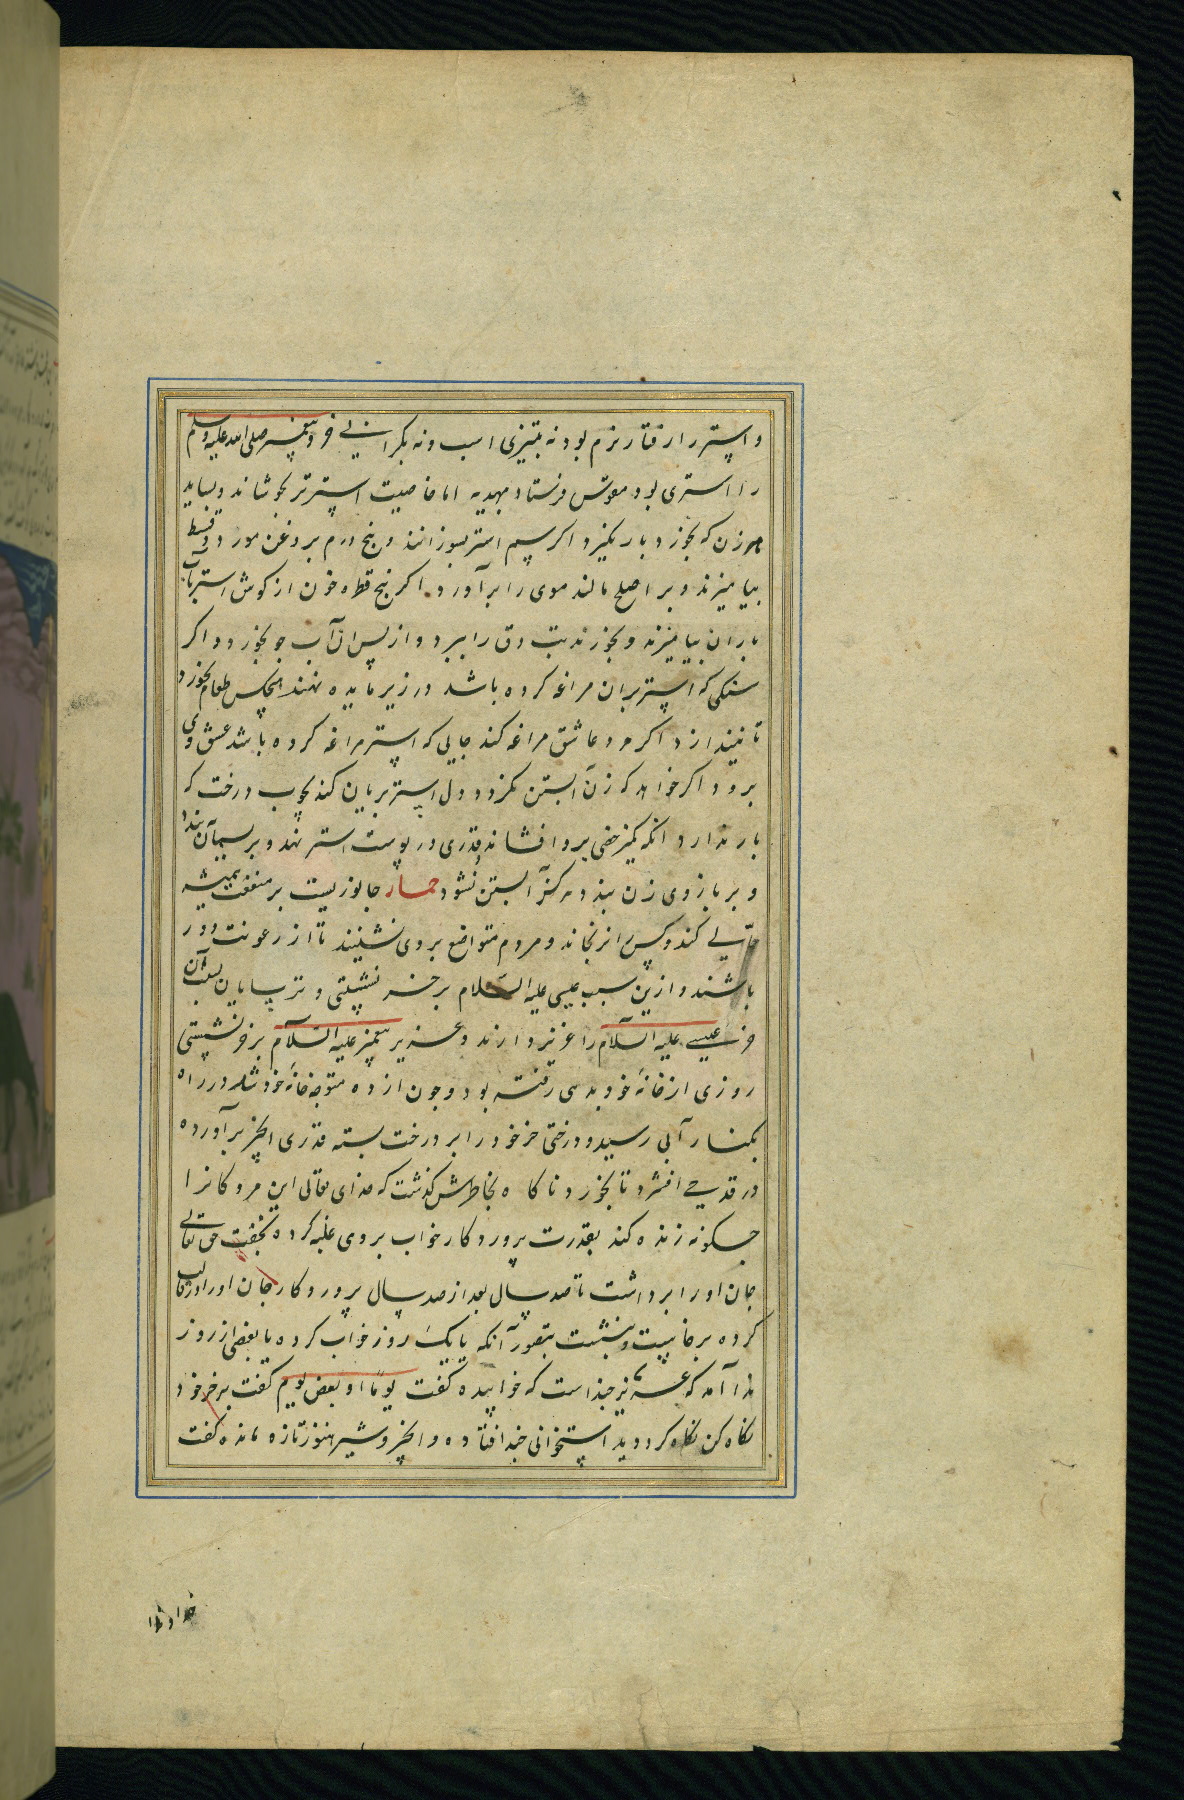 و استر را رفتار نرم بود نه بتیزی اسب و نه بکرانی خر و پیغمبر صلی الله علیه و سلم
را استری بود مقوقس فرستاد بهدیه اما خاصیت استر تر بجوشاند و بساید
هر زن که بخورد بار نکیرد اکر سم استر بسوزانند و پنج درم بروغن مورد دو قسط
بیامیزند و بر اصلع مالند موی را برآورد اکر پنج قطره خون از کوش استر بآب
باران بیامیزند و بخورند تب دق را ببرد و از پس آن آب جو بخورد و اکر
سنکی که استر بران مراغه کرده باشد در زیر مایده نهند هیچکس طعام نخورد
تا نیندازد اکر مرد عاشق مراغه کند جایی که استر مراغه کرده باشد عشق وی
برود اکر خواهد که زن آبستن نکردد دل استر بریان کند بچوب درخت که
بار ندارد انکه کمیز خصی برو افشاند قدری در پوست استر نهد و بریسمان بندد
و بر بازوی زن بندد هرکز آبستن نشود حمار جانوریست بر منفعت همیشه
کند و کس را نرنجاند و مردم متواضع بر وی نشینند تا از رعونت دور
باشند و ازین سبب عیسی علیه السلام بر خر نشستی و ترسایان بسبب آن
خر عیسی علیه السلام را عزیز دارند و عزیر پیغمبر علیه السلام بر خر نشستی
روزی از خانه خود بدهی رفته بود و چون از ده متوجه خانه خود شد در راه
بکنار آبی رسید و درختی خر خود را بر درخت بسته قدری انجیر برآورده
در قدحی افشرد تا بخورد ناکاه بخاطرش کذشت که خدای تعالی این مردکانرا
چکونه زنده کند بقدرت پروردکار خواب بر وی غلبه کرده بخفت حق تعالی
جان او را برداشت تا صد سال بعد از صد سال پروردکار جان او را در قالب
کرده برخاست و بنشست بتصور آنکه یا یک روز خواب کرده یا بعضی از روز
ندا آمد که عزیر چند است که خوابیده کفت یوما او بعض یوم کفت بر خر خود
نکاه کن نکاه کرد دید استخوانی چند افتاده و انجیر و شیر هنوز تازه مانده کفت